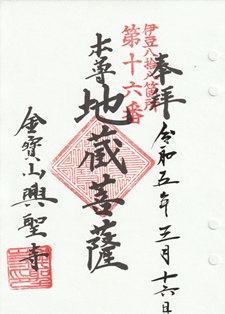 奉拝
令和五年三月十六日
伊豆八十八箇所
第十六番
本尊
地蔵菩薩
金寶山興聖寺